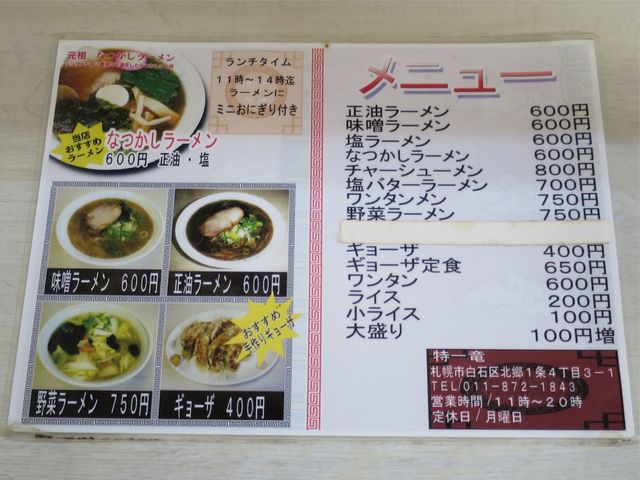 元祖 なつかしラーメン
ランチタイム
11時～14時迄
ラーメンに
ミニおにぎり付き
当店
おすすめ
ラーメン
なつかしラーメン
600円 正油・塩
味噌ラーメン 600円
正油ラーメン 600円
おすすめ
手作りギョーザ
野菜ラーメン 750円
ギョーザ 400円
メニュー
正油ラーメン 600円
味噌ラーメン 600円
塩ラーメン 600円
なつかしラーメン 600円
チャーシューメン 800円
塩バターラーメン 700円
ワンタンメン 750円
野菜ラーメン 750円
ギョーザ 400円
ギョーザ定食 650円
ワンタン 600円
ライス 200円
小ライス 100円
大盛り 100円増
特一竜
札幌市白石区北郷1条4丁目3－1
TEL/011-872-1843
営業時間/11時～20時
定休日/月曜日